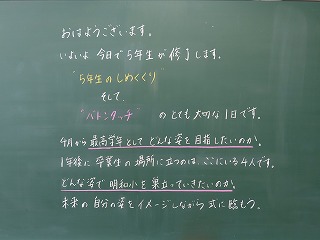 おはようございます。
いよいよ 今日で 5年生が 修了します。
"5年生の しめくくり"
そして、
"バトンタッチ" の とても 大切な 1日です。
4月から 最高学年として どんな姿を 目指したいのか。
1年後に 卒業生の 場所に 立つのは、ここにいる 4人です。
どんな姿で 明和小を 巣立っていきたいのか。
未来の 自分の 姿を イメージしながら 式に 臨もう。